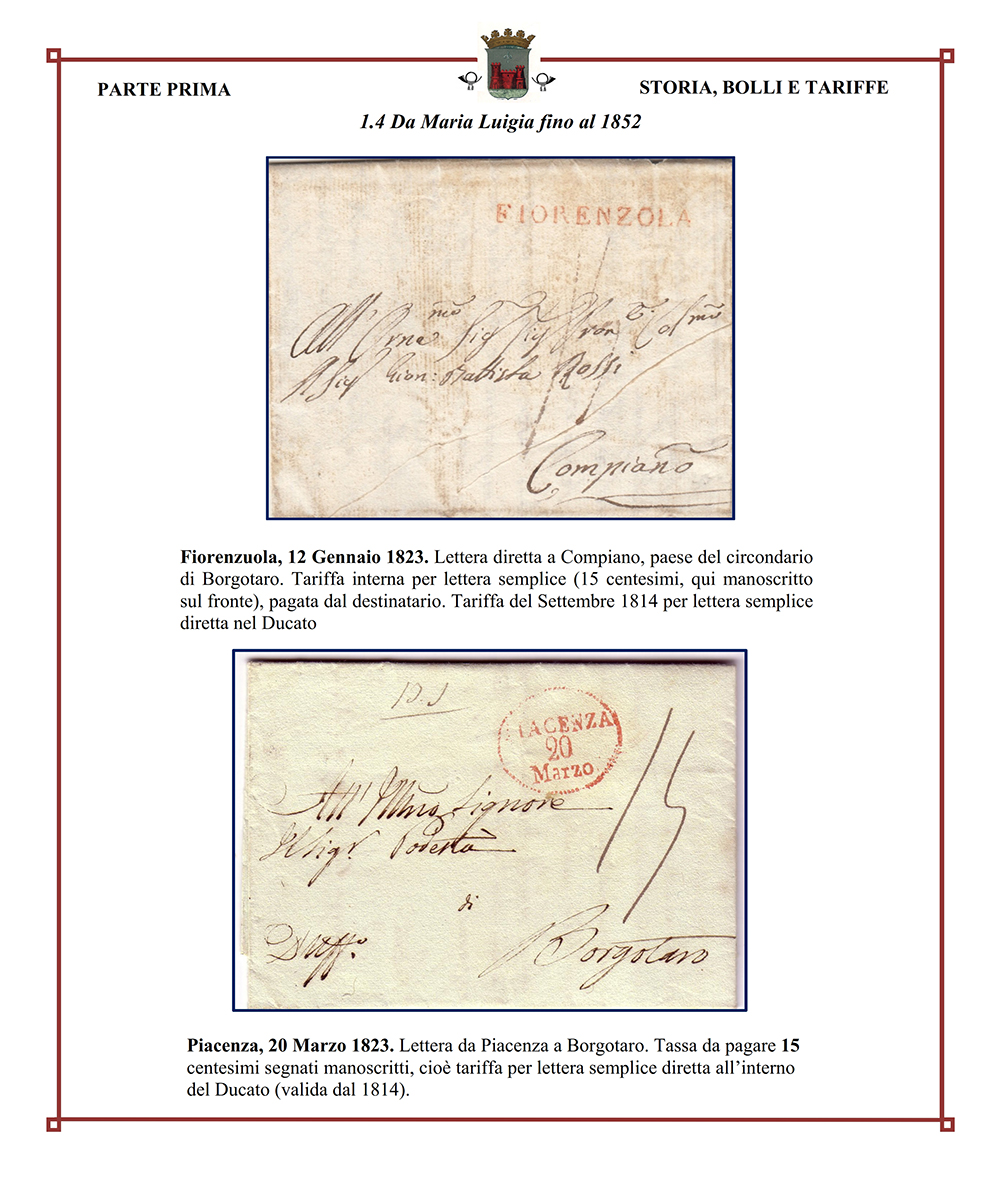 PARTE PRIMA
STORIA, BOLLI E TARIFFE
1.4 Da Maria Luigia fino al 1852
FIORENZOLA
All' Orna mo Sig Sig Pron Colmo
Il Sig Gion: Battista Rossi
Compiano
Fiorenzuola, 12 Gennaio 1823. Lettera diretta a Compiano, paese del circondario
di Borgotaro. Tariffa interna per lettera semplice (15 centesimi, qui manoscritto
sul fronte), pagata dal destinatario. Tariffa del Settembre 1814 per lettera semplice
diretta nel Ducato
PIACENZA
20
Marzo
15
All' Illmo Signore
Il Sigr. Podestà
di
Borgotaro
Piacenza, 20 Marzo 1823. Lettera da Piacenza a Borgotaro. Tassa da pagare 15
centesimi segnati manoscritti, cioè tariffa per lettera semplice diretta all'interno
del Ducato (valida dal 1814).